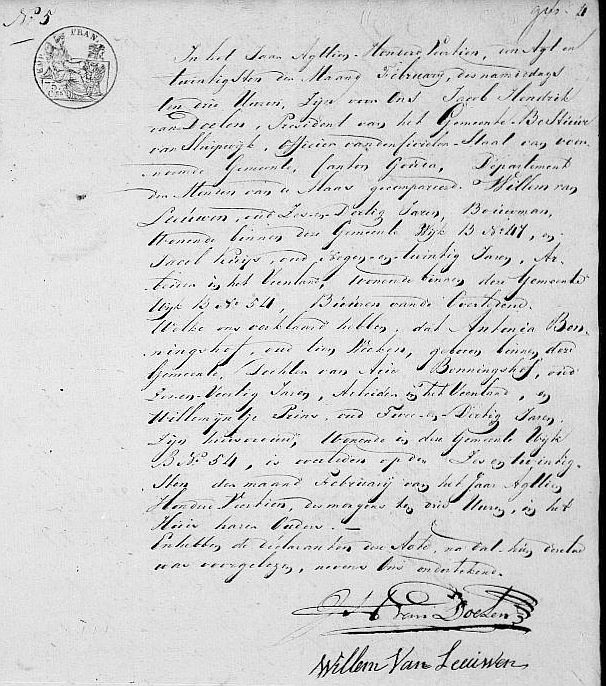 N.º 5
In het Jaar Agttien Honderd Veertien, den Agt en
twintigsten der Maand February, des namiddags
ten drie Uuren, Zijn voor Ons Jacob Hendrik
van Doelen, President van het Gemeente-Bestuur
van Sluipwijk, Officier van den Civielen-Staat van voor-
noemde Gemeente, Canton Gouda, Departement
der Monden van de Maas gecompareerd Willem van
Leeuwen, oud Zes-en-Dertig Jaren, Bouwman,
Wonende binnen deze Gemeente Wyk B N.º 47, en
Jacob, oud Negen-en-twintig Jaren, Ar-
beider in het Veenland, Wonende binnen deze Gemeente
Wyk B N.º 54, Buuren van de Overledene.
Welke ons verklaard hebben, dat Antonia Bon-
ningshof, oud tien Weeken, geboren binnen deze
Gemeente, Dochter van Arie Bonningshof, oud
Zes-en-Veertig Jaren, Arbeider in het Veenland, en
Willemyntje Prins, oud Twee-en-Dertig Jaren,
Zijn huisvrouw, Wonende in deze Gemeente Wyk
B N.º 54, is overleden op den Zes en twintig-
sten der maand Februarij van het Jaar Agttien
Honderd Veertien, des morgens ten drie Uuren, in het
Huis harer Ouders. —
En hebben de declaranten deze Acte, na dat hun dezelve
was voorgelezen, nevens Ons ondertekend.
J H van Doelen
Willem Van Leeuwen